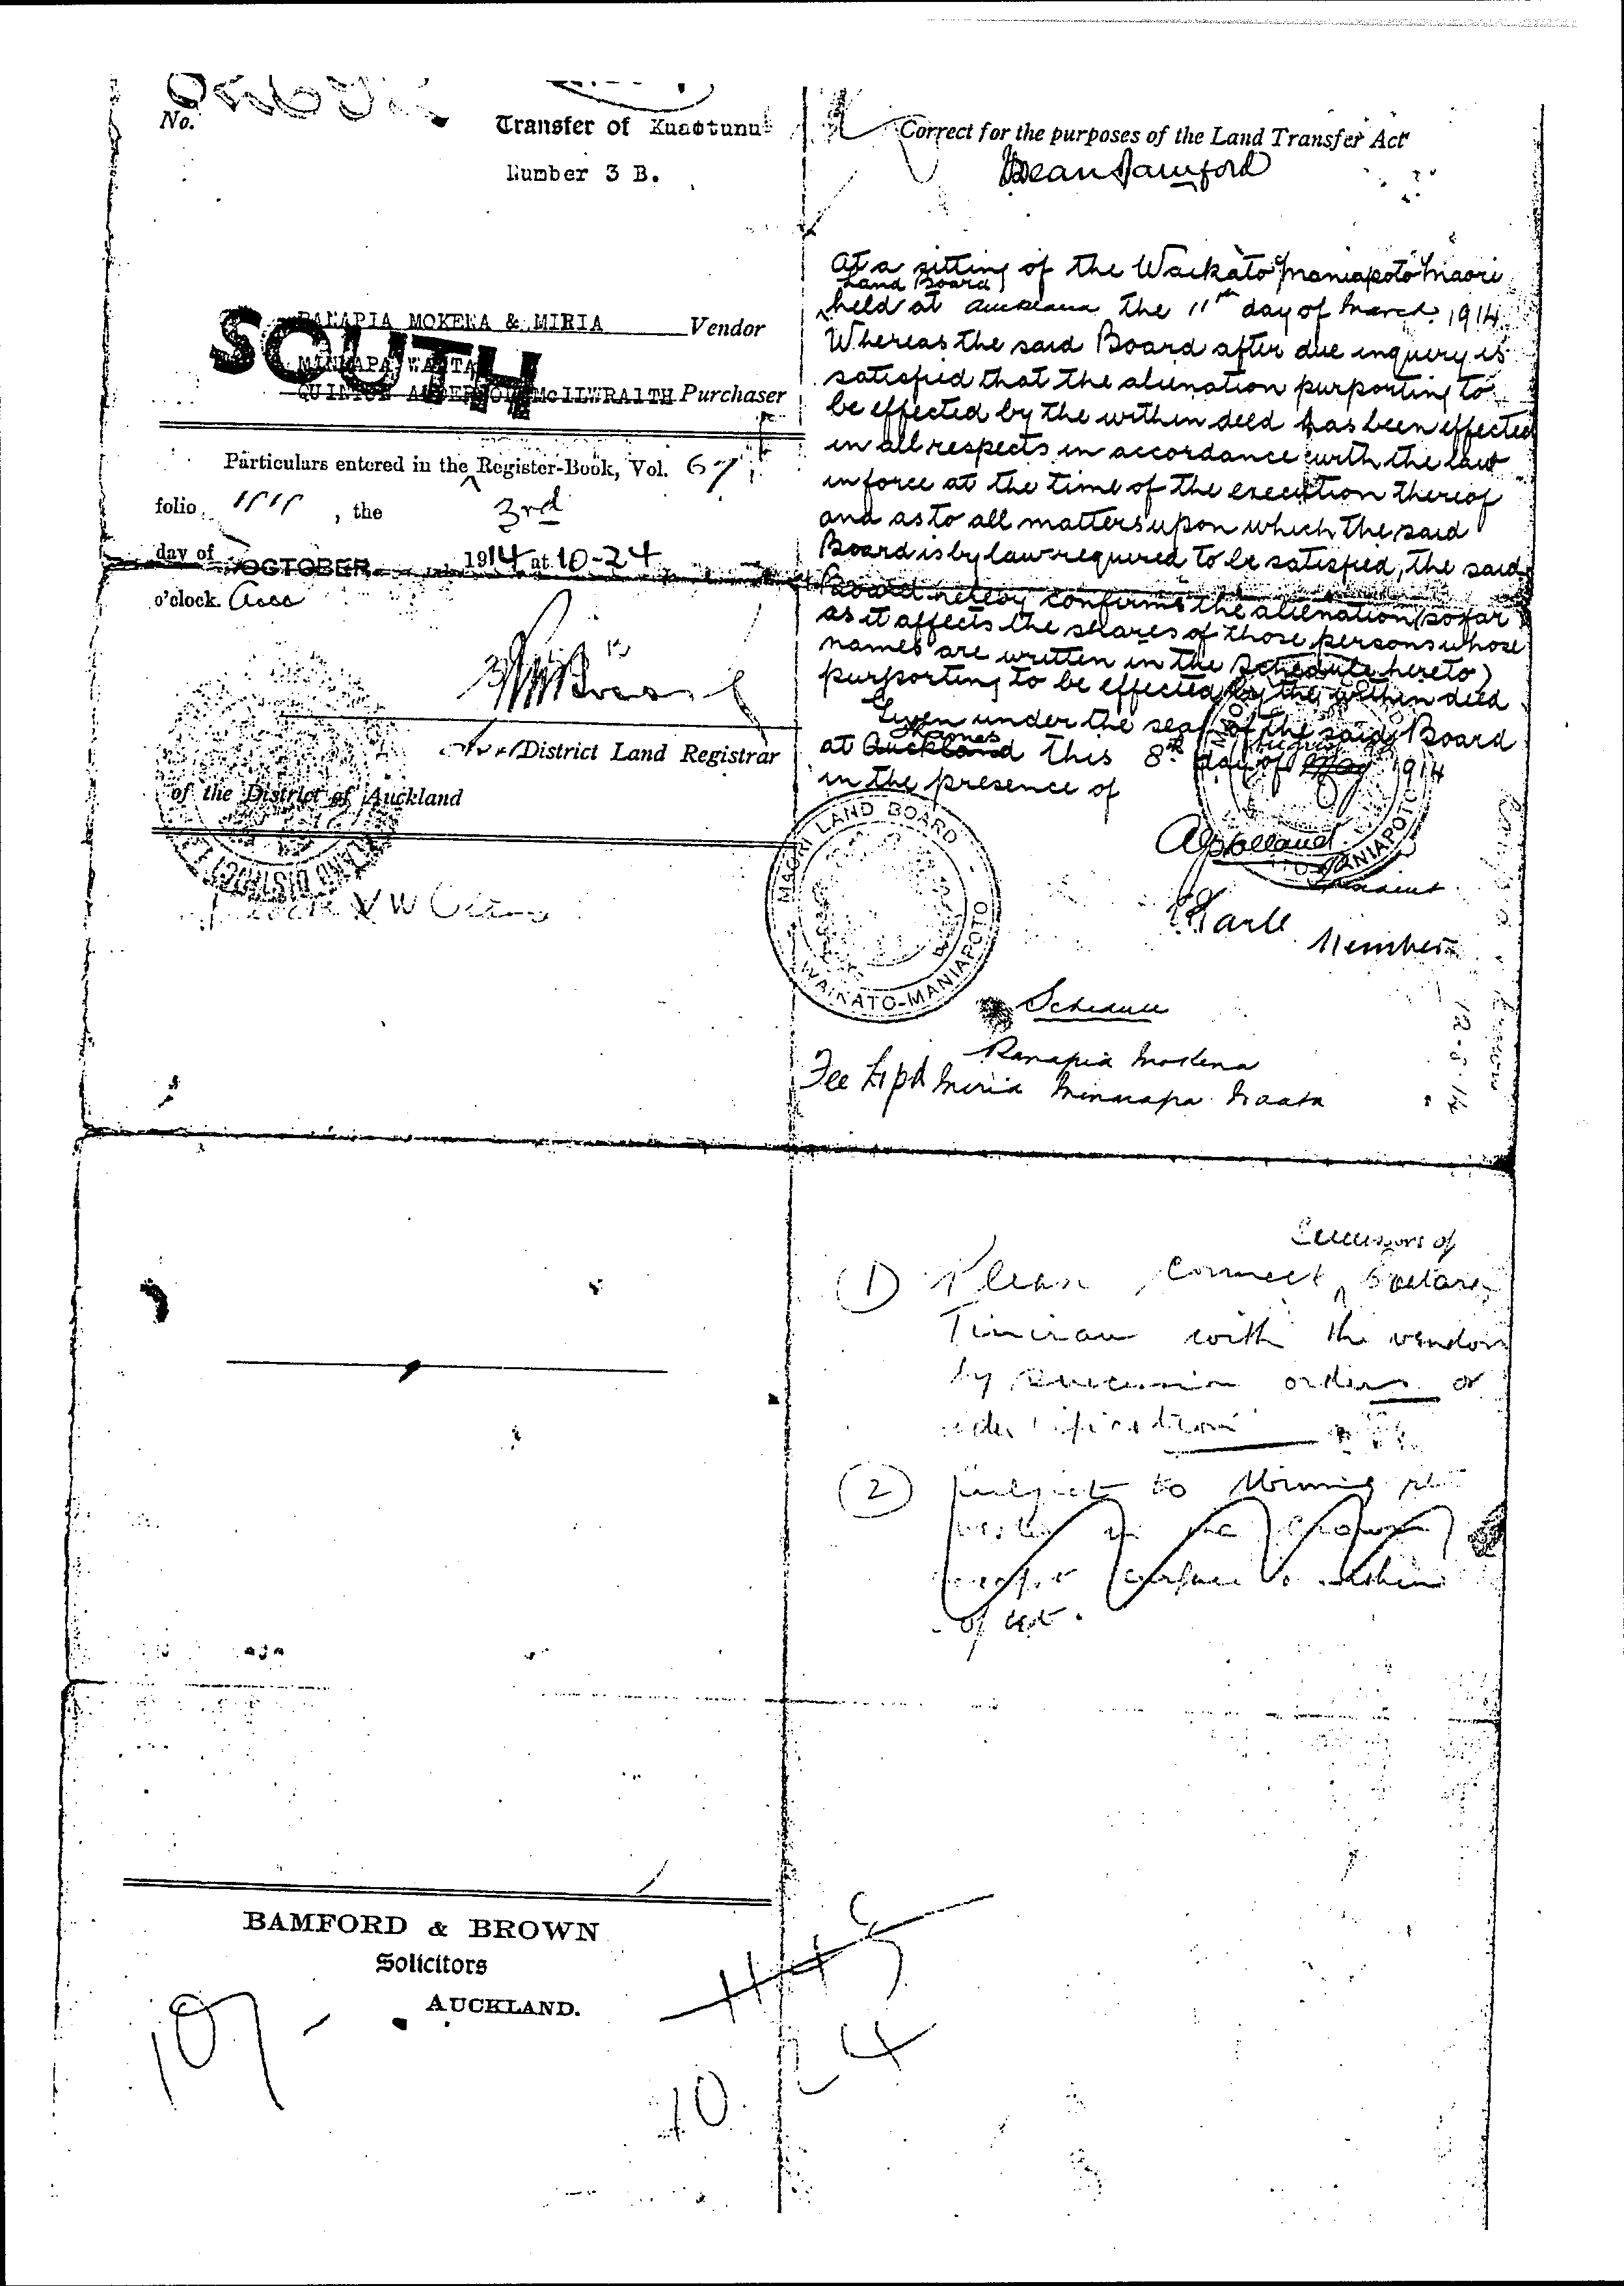 No.
Transfer of Kuaotunu
Number 3 B.
RANAPIA MOKENA & MIRIA Vendor
MINARAPA WAATA
QUINTON McILWRAITH Purchaser
SOUTH
Particulars entered in the Register-Book, Vol. 67
folio , the 3rd
day of OCTOBER 1914 at 10-24
o'clock.
District Land Registrar
of the District of Auckland
LAND DISTRICT
Correct for the purposes of the Land Transfer Act
Dean Bamford
At a sitting of the Waikato Maniapoto Maori
Land Board
held at Auckland the 11th day of March 1914
Whereas the said Board after due inquery is
satisfied that the alienation purporting to
be effected by the within deed has been effected
in all respects in accordance with the law
in force at the time of the execution thereof
and as to all matters upon which the said
Board is by law required to be satisfied, the said
Board hereby confirms the alienation (so far
as it affects the shares of those persons whose
names are written in the Schedule hereto)
purporting to be effected by the within deed
Given under the seal of the said Board
Thames
at Auckland this 8th day of May 1914
in the presence of
MAORI LAND BOARD
WAIKATO-MANIAPOTO
President
Member
Schedule
Ranapia Mokena
Fee £1 pd Miria Minarapa Waata
12-8-14
Successors of
(1) Please connect
with the vendors
by succession orders or
identification
(2) Subject to Mining
vested in the Crown
except surface
of
BAMFORD & BROWN
Solicitors
AUCKLAND.
10/-
11 45
10 24